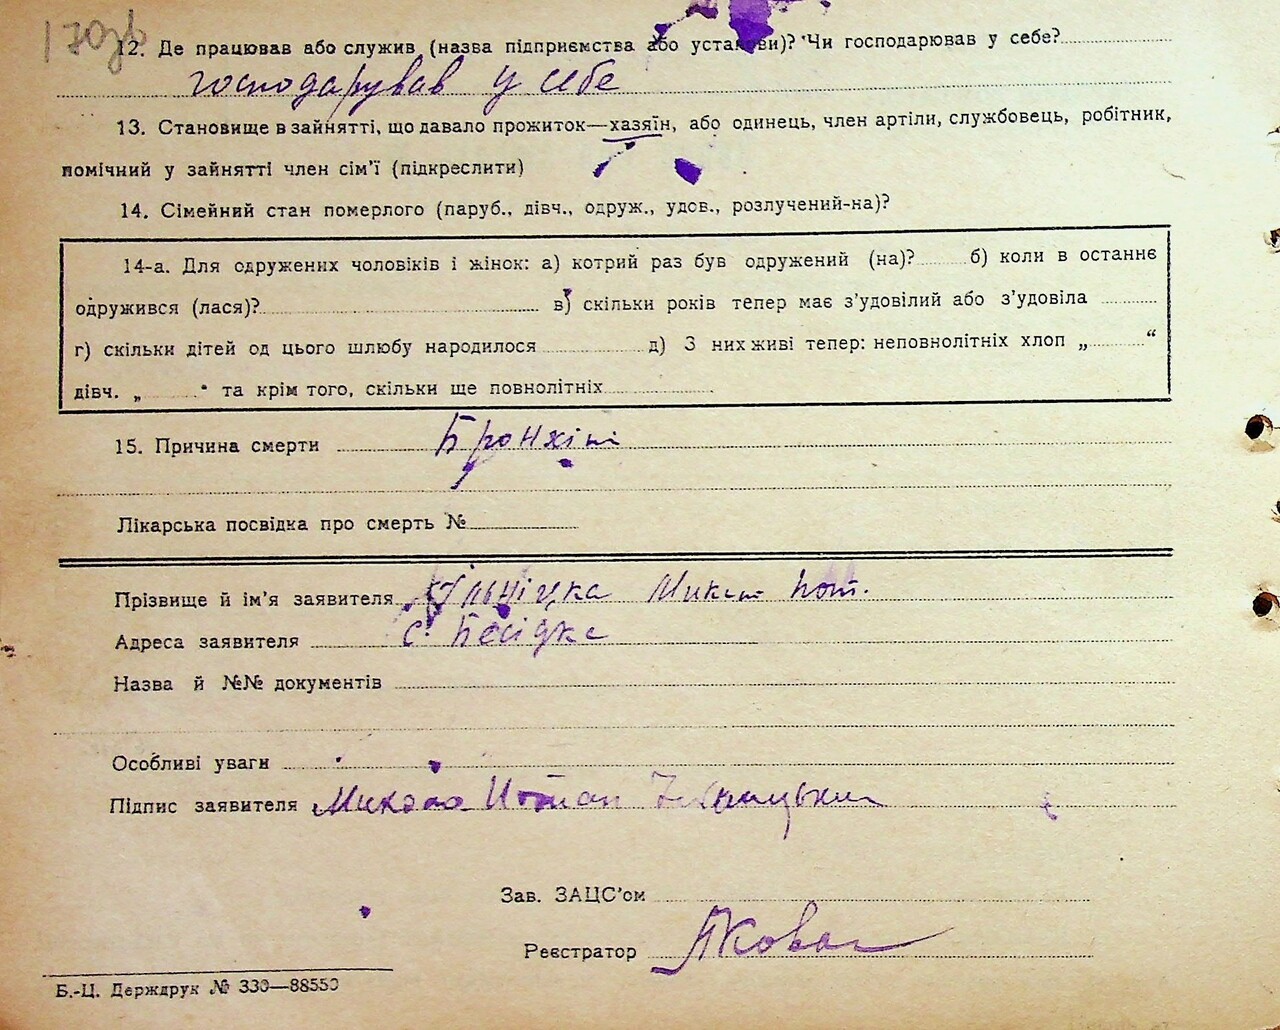 170зв
12. Де працював або служив (назва підприємства або установи)? Чи господарював у себе?
господарував у себе
13. Становище в зайнятті, що давало прожиток—хазяїн, або одинець, член артіли, службовець, робітник,
помічний у зайнятті член сім'ї (підкреслити)
14. Сімейний стан померлого (паруб., дівч., одруж., удов., розлучений-на)?
14-а. Для одружених чоловіків і жінок: а) котрий раз був одружений (на)? б) коли в останнє
одружився (лася)? в) скільки років тепер має з'удовілий або з'удовіла
г) скільки дітей од цього шлюбу народилося д) З них живі тепер: неповнолітніх хлоп „ “
дівч. „ “ та крім того, скільки ще повнолітніх
15. Причина смерти Бронхіт
Лікарська посвідка про смерть №
Прізвище й ім'я заявителя
Адреса заявителя с. Бесідка
Назва й №№ документів
Особливі уваги
Підпис заявителя Микола
Зав. ЗАЦС'ом
Реєстратор
Б.-Ц. Держдрук № 330—88550